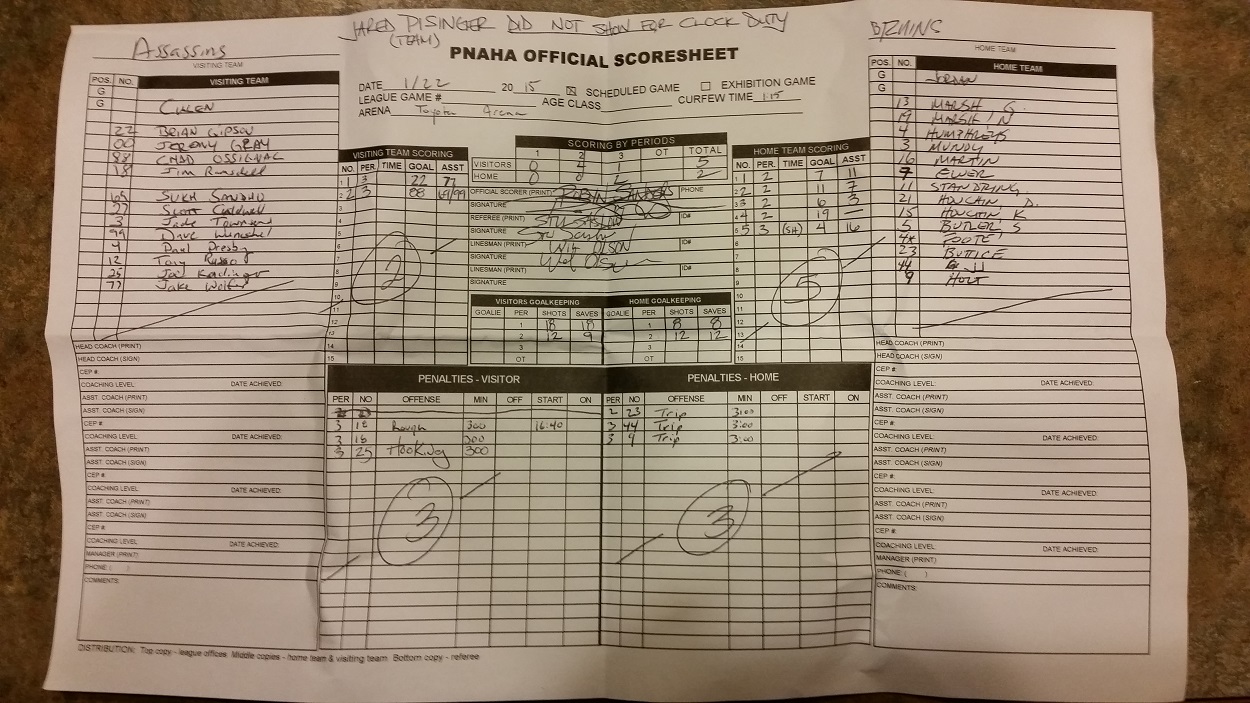 JARED PISINGER DID NOT SHOW FOR CLOCK DUTY
(TEAM)
Assassins
VISITING TEAM
PNAHA OFFICIAL SCORESHEET
HOME TEAM
DATE 1/22 20 15 SCHEDULED GAME EXHIBITION GAME
LEAGUE GAME # AGE CLASS CURFEW TIME 1:15
ARENA Toyota Arena
POS. NO. VISITING TEAM
G
G CULLEN
22 BRIAN GIPSON
00 JEREMY GRAY
88 CHAD OSSIGNAC
18 Jim Ransdell
SUKH SANDHU
27 Scott Caldwell
3 Jade Townsend
99 Dave
4 Paul Presby
12 Tony Russo
25 Joe
77 Jake
VISITING TEAM SCORING
NO. PER. TIME GOAL ASST
1 3 22 77
2 3 88 69/99
3
4
5
6
7
8
9
10
11
12
13
14
15
2
SCORING BY PERIODS
1 2 3 OT TOTAL
VISITORS 0 4 5
HOME 0 0 2 2
OFFICIAL SCORER (PRINT) PHONE
SIGNATURE
REFEREE (PRINT) ID#
SIGNATURE
LINESMAN (PRINT) Will OLSON ID#
SIGNATURE
LINESMAN (PRINT) ID#
SIGNATURE
VISITORS GOALKEEPING HOME GOALKEEPING
GOALIE PER SHOTS SAVES GOALIE PER SHOTS SAVES
1 18 18 1 8 8
2 12 9 2 12 12
3 3
OT OT
HOME TEAM SCORING
NO. PER. TIME GOAL ASST
1 2 7 11
2 2 11 7
3 2 6 3
4 2 19 —
5 3 (SH) 4 16
6
7
8
9
10
11
12
13
14
15
5
POS. NO. HOME TEAM
G JORDAN
G
13 MARSH, G.
19 MARSH, N
4 HUMPHREYS
3 MUNDY
16 MARTIN
7 EWER
11 STANDRING
21 HOUCHIN, D.
15 HOUCHIN, K
5 BUTLER, S
FOOTE
23 BUTTICE
44
9 HOLT
HEAD COACH (PRINT)
HEAD COACH (SIGN)
CEP #
COACHING LEVEL DATE ACHIEVED:
ASST. COACH (PRINT)
ASST. COACH (SIGN)
CEP #
COACHING LEVEL DATE ACHIEVED:
ASST. COACH (PRINT)
ASST. COACH (SIGN)
CEP #
COACHING LEVEL DATE ACHIEVED:
ASST. COACH (PRINT)
ASST. COACH (SIGN)
CEP #
COACHING LEVEL DATE ACHIEVED:
MANAGER (PRINT)
PHONE ( )
COMMENTS:
PENALTIES - VISITOR
PER NO OFFENSE MIN OFF START ON
3 18 Rough 300 16:40
3 18 300
3 25 Hooking 300
3
PENALTIES - HOME
PER NO OFFENSE MIN OFF START ON
2 23 Trip 3:00
3 44 Trip 3:00
3 9 Trip 3:00
3
HEAD COACH (PRINT)
HEAD COACH (SIGN)
CEP #
COACHING LEVEL DATE ACHIEVED:
ASST. COACH (PRINT)
ASST. COACH (SIGN)
CEP #
COACHING LEVEL DATE ACHIEVED:
ASST. COACH (PRINT)
ASST. COACH (SIGN)
CEP #
COACHING LEVEL DATE ACHIEVED:
ASST. COACH (PRINT)
ASST. COACH (SIGN)
CEP #
COACHING LEVEL DATE ACHIEVED:
MANAGER (PRINT)
PHONE ( )
COMMENTS:
DISTRIBUTION: Top copy - league offices Middle copies - home team & visiting team Bottom copy - referee